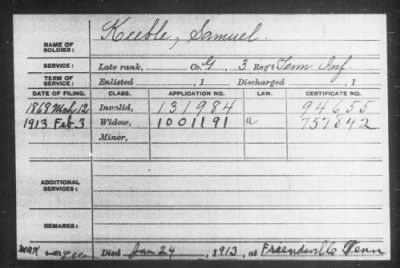 Keeble, Samuel.
NAME OF SOLDIER:
SERVICE: Late rank, Co. G, 3 Reg't Tenn Inf
TERM OF SERVICE: Enlisted , 1 Discharged , 1
DATE OF FILING. CLASS. APPLICATION NO. LAW. CERTIFICATE NO.
1868 Mch 12 Invalid, 131984 94655
1913 Feb 3 Widow, 1001191 a 757842
Minor,
ADDITIONAL SERVICES:
REMARKS:
Died Jan 24, 1913, at Tenn